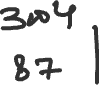 3004
87 |